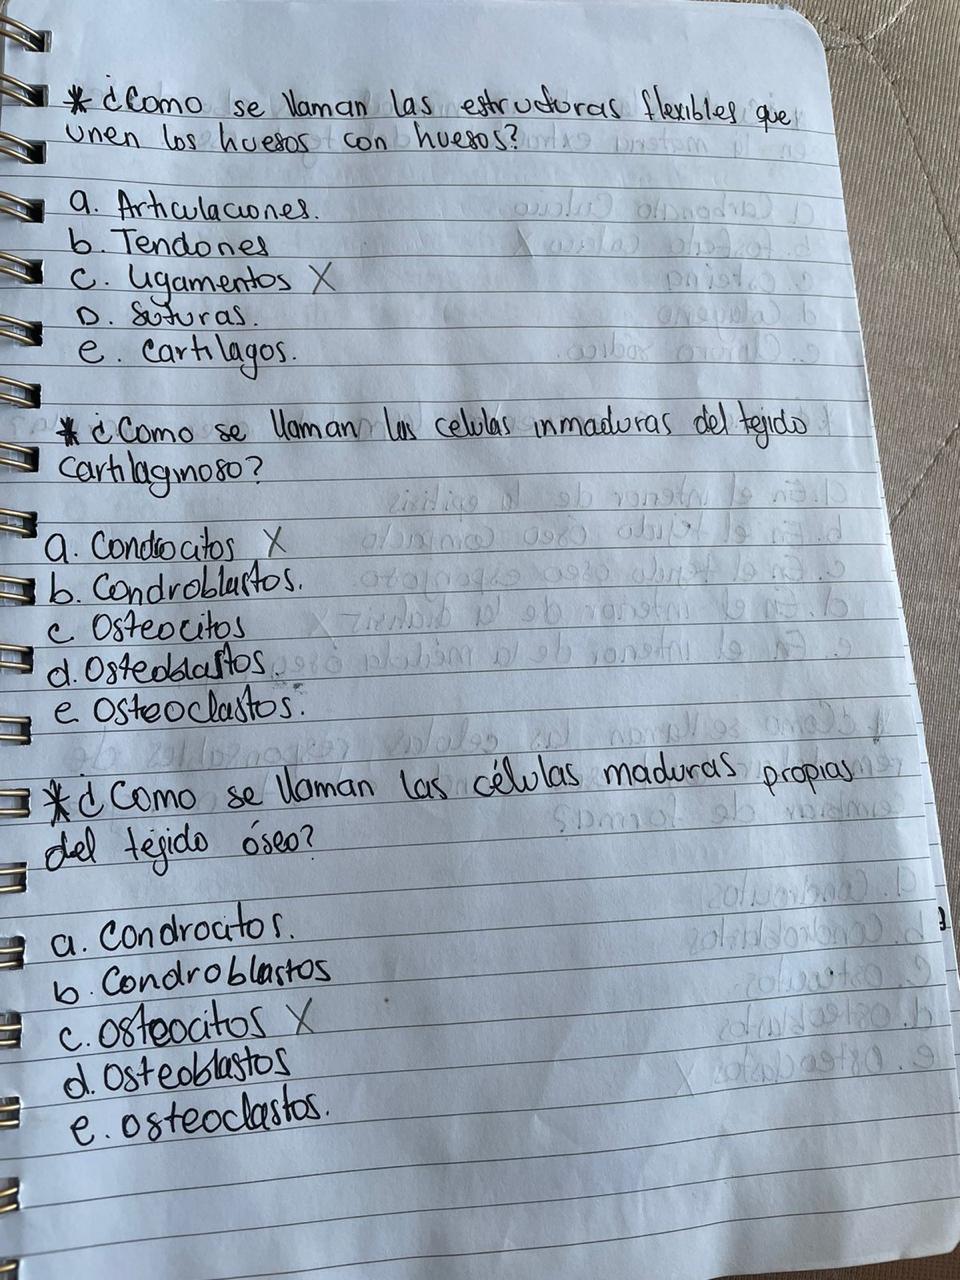 * ¿Como se llaman las estructuras flexibles que
unen los huesos con huesos?
a. Articulaciones.
b. Tendones
c. Ligamentos X
D. Suturas.
e. Cartilagos.
* ¿Como se llaman las celulas inmaduras del tejido
cartilaginoso?
a. Condrocitos X
b. Condroblastos.
c Osteocitos
d. Osteoblastos.
e Osteoclastos.
* ¿Como se llaman las células maduras propias
del téjido óseo?
a. Condrocitos.
b. Condroblastos
c. Osteocitos X
d. Osteoblastos
e. osteoclastos.